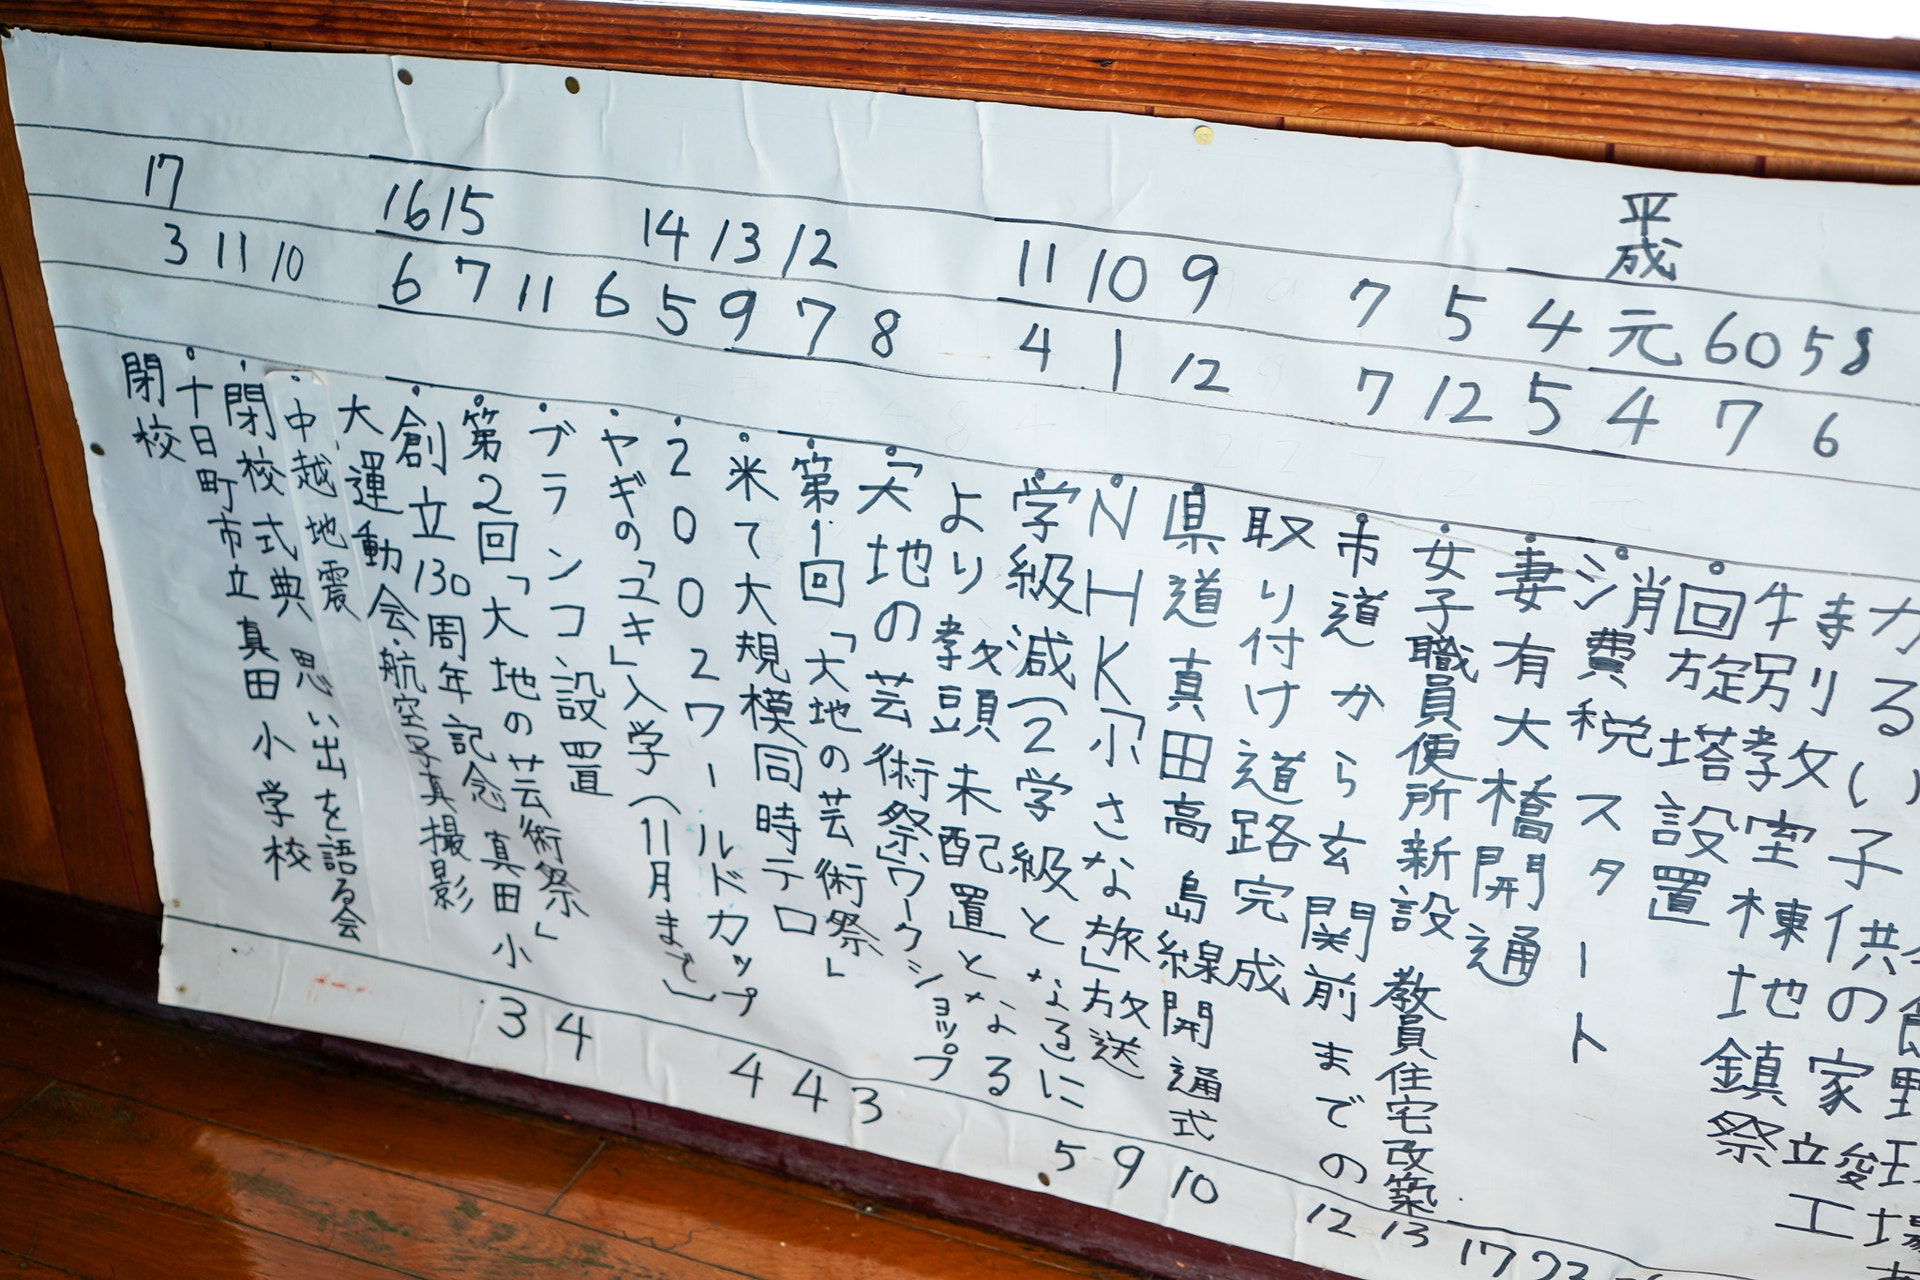 平成
58
6
60
7
元
4
4
5
5
12
7
7
9
12
10
1
11
4
8
12
7
13
9
14
5
6
11
15
7
16
6
10
11
17
3
特別教室棟地鎮祭
回旋塔設置
消費税スタート
妻有大橋開通
・女子職員便所新設 教員住宅改築
・市道から玄関前までの
取り付け道路完成
・県道真田高島線開通式
・NHK「小さな旅」放送
・学級減(2学級となるに
より教頭未配置となる
・「大地の芸術祭」ワークショップ
・第1回「大地の芸術祭」
・米て大規模同時テロ
・2002ワールドカップ
・ヤギの「ユキ」入学(11月まで)
・ブランコ設置
・第2回「大地の芸術祭」
・創立130周年記念 真田小
大運動会・航空写真撮影
・中越地震
・閉校式典 思い出を語る会
・十日町市立 真田小学校
閉校
17
13
12
10
9
5
3
4
4
4
3